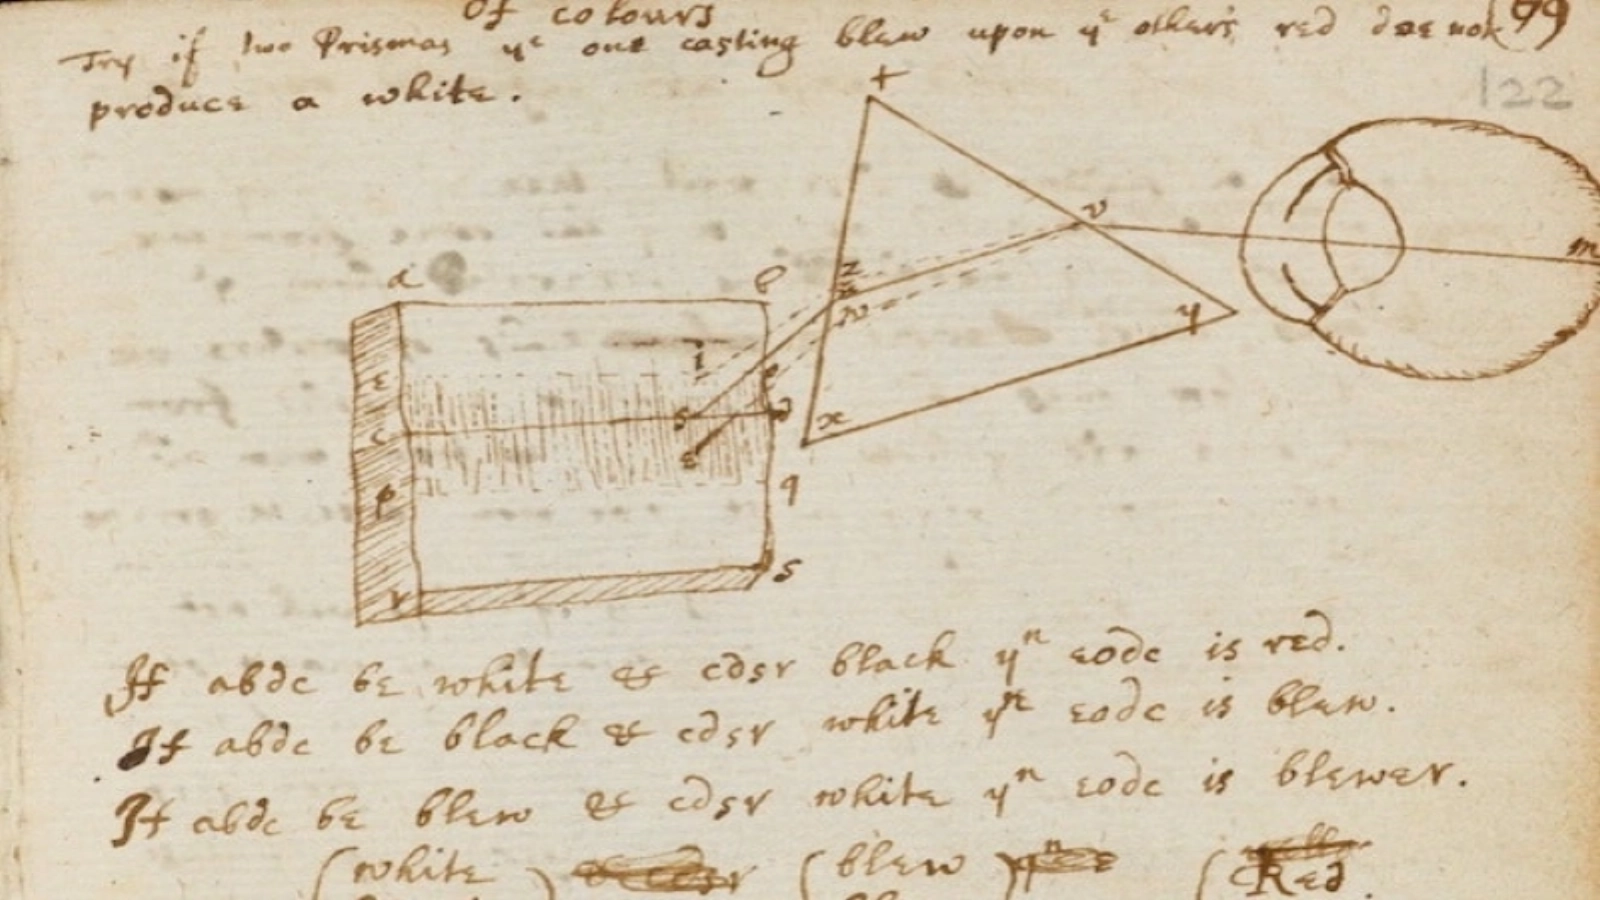 Of colours
Try if two Prismas yᵉ one casting blew upon yᵉ others red doe not
produce a white.
99
122
t
v
m
z
w
y
x
a
b
i
e
s
c
p
q
r
s
If abdc be white & cdsr black yⁿ eodc is red.
If abdc be black & cdsr white yⁿ eodc is blew.
If abdc be blew & cdsr white yⁿ eodc is blewer.
(white ) (blew ) (Red.